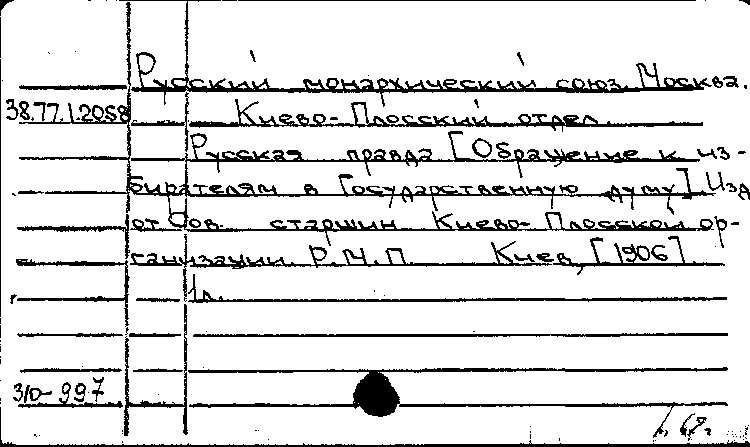 Русский монархический союз. Москва.
38.77.1.2058 Киево-Плосский отдел.
Русская правда [Обращение к из-
бирателям в Государственную думу] Изд
от Сов. старшин Киево-Плосской ор-
ганизации Р.М.П. Киев, [1906].
1л.
3/0-997